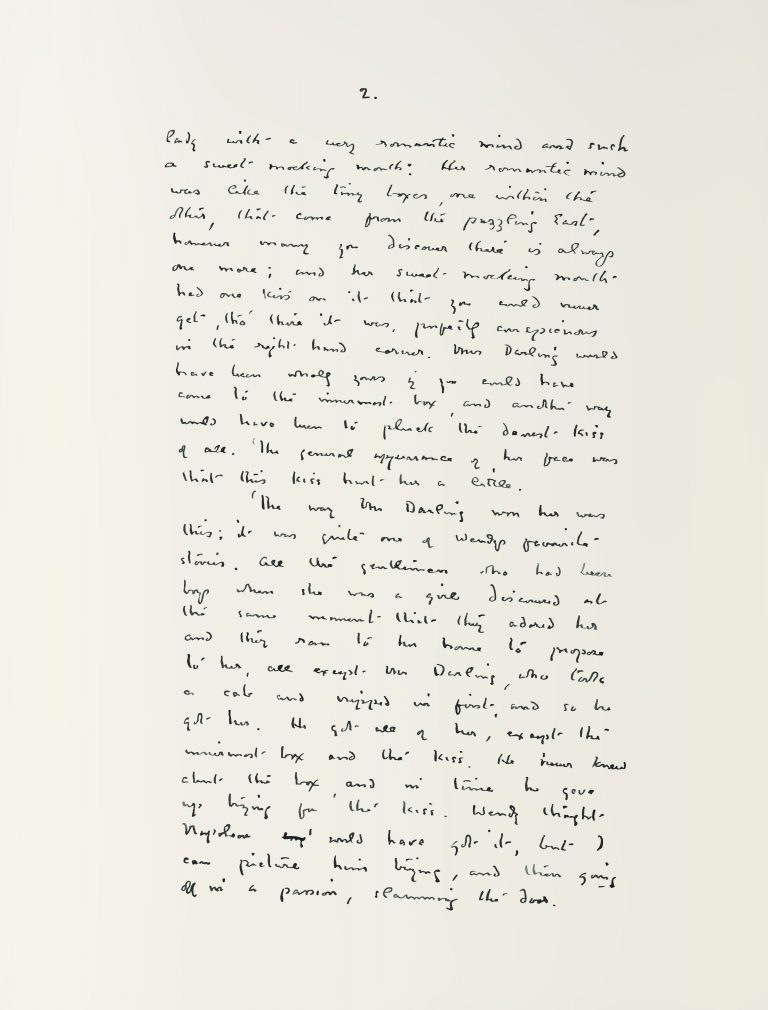 2.
lady with a very romantic mind and such
a sweet mocking mouth. Her romantic mind
was like the tiny boxes, one within the
other, that come from the puzzling East,
however many you discover there is always
one more; and her sweet mocking mouth
had one kiss on it that you could never
get, tho' there it was, perfectly conspicuous
in the right hand corner. Mr Darling would
have been wholly yours if you could have
come to the innermost box, and another way
would have been to pluck the dearest kiss
of all. The general appearance of her face was
that this kiss hurt her a little.
The way Mr Darling won her was
this; it was quite one of Wendy's favourite
stories. All the gentlemen who had been
boys when she was a girl discovered at
the same moment that they adored her
and they ran to her home to propose
to her, all except Mr Darling, who took
a cab and nipped in first, and so he
got her. He got all of her, except the
innermost box and the kiss. He never knew
about the box, and in time he gave
up trying for the kiss. Wendy thought
Napoleon would have got it, but I
can picture him trying, and then going
off in a passion, slamming the door.